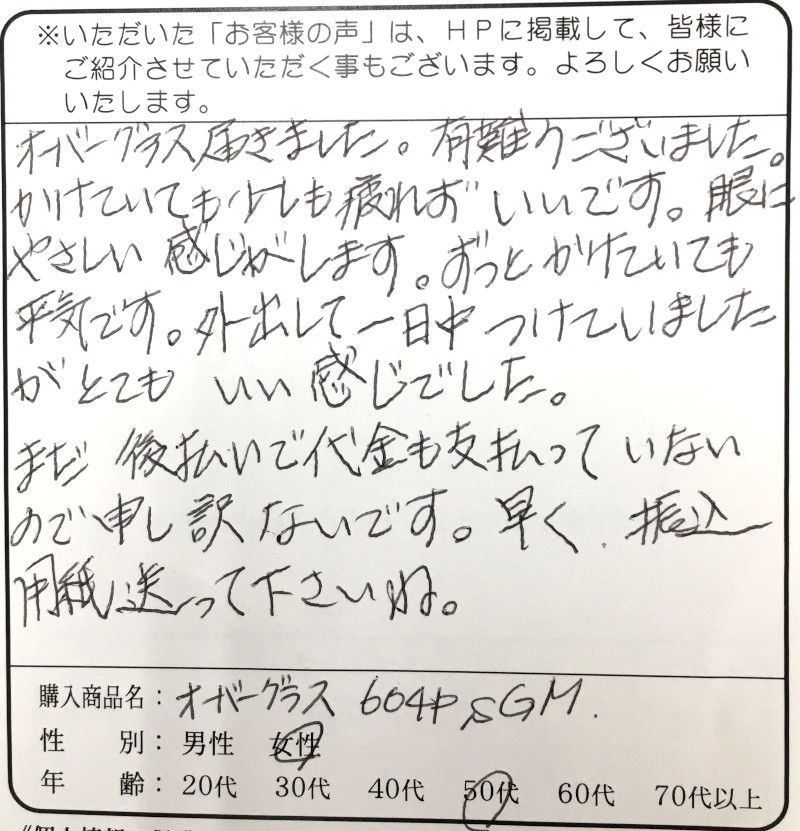 ※いただいた「お客様の声」は、HPに掲載して、皆様に
ご紹介させていただく事もございます。よろしくお願い
いたします。
オーバーグラス届きました。有難うございました。
かけていても少しも疲れずいいです。眼に
やさしい感じがします。ずっとかけていても
平気です。外出して一日中つけていました
がとてもいい感じでした。
まだ後払いで代金も支払っていない
ので申し訳ないです。早く振込
用紙送って下さいね。
購入商品名：オーバーグラス 604P SGM.
性 別：男性 女性
年 齢：20代 30代 40代 50代 60代 70代以上